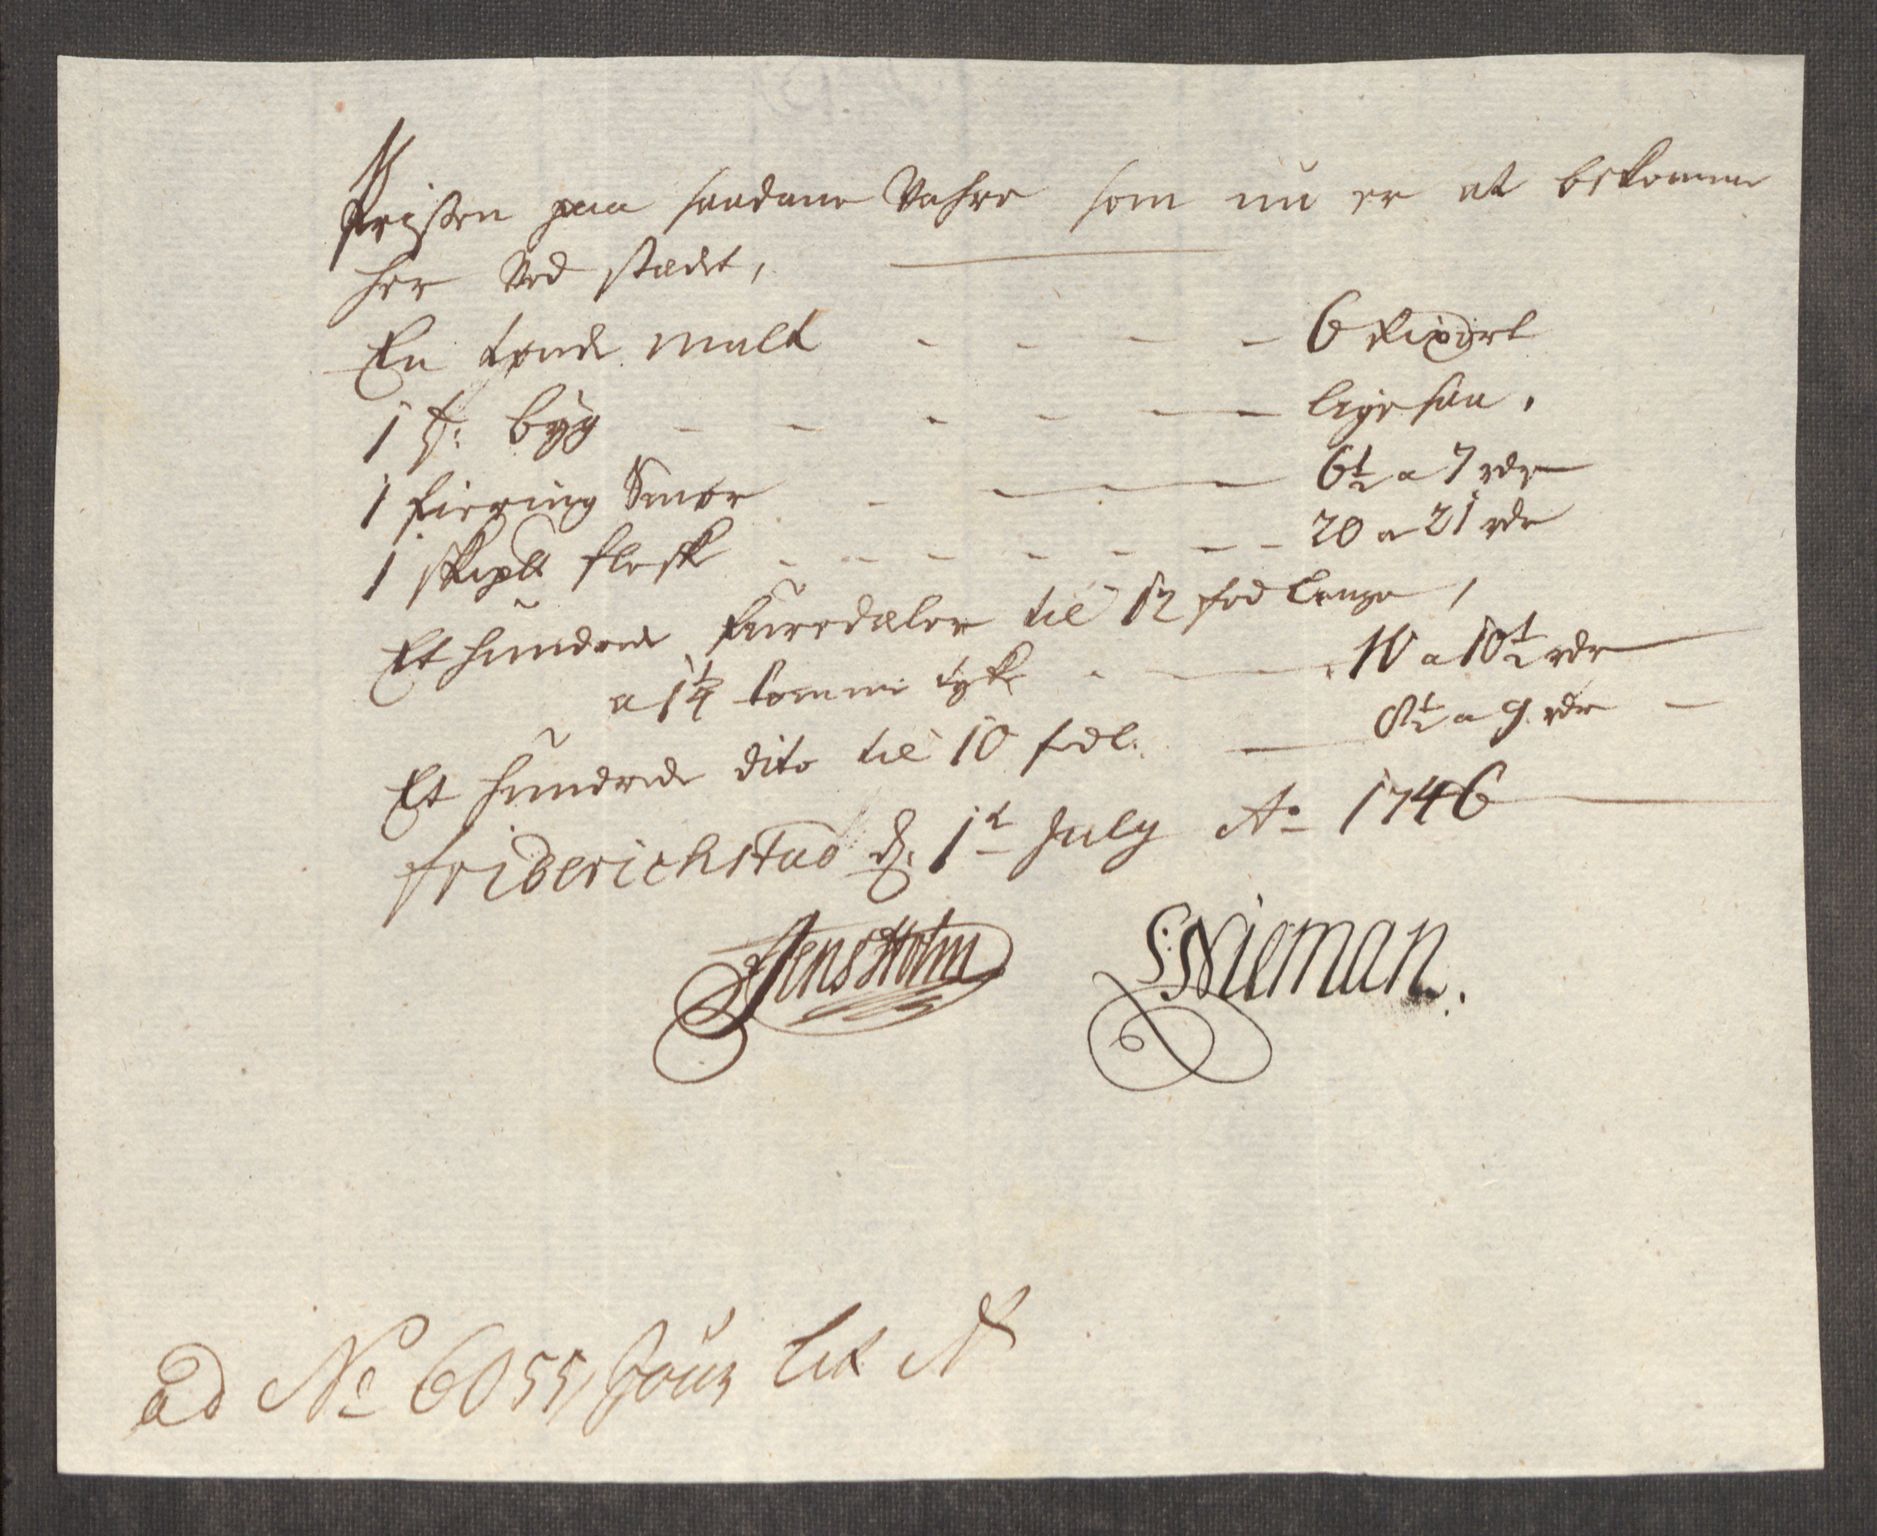 Prissen paa saadane Vahre som nu er at bekomme
her Ved stædet,
En tønde malt - - - - 6 Rixort
1 t: byg - - - - - - ligesaa.
1 fierring Smør - - - - 6½ a 7 rdr
1 skiplb flesk - - - - - - - 20 a 21 rdr
Et hundrede furredæler til 12 fod lenge,
a 1¼ tomme tyk - - 10 a 10½ rdr
Et hundrede dito til 10 fod l: - 8½ a 9 rdr -
Friderichstad d. 1t July Ao 1746
Jens Holm S: Nieman.
ad No 6055, Jour Lit N